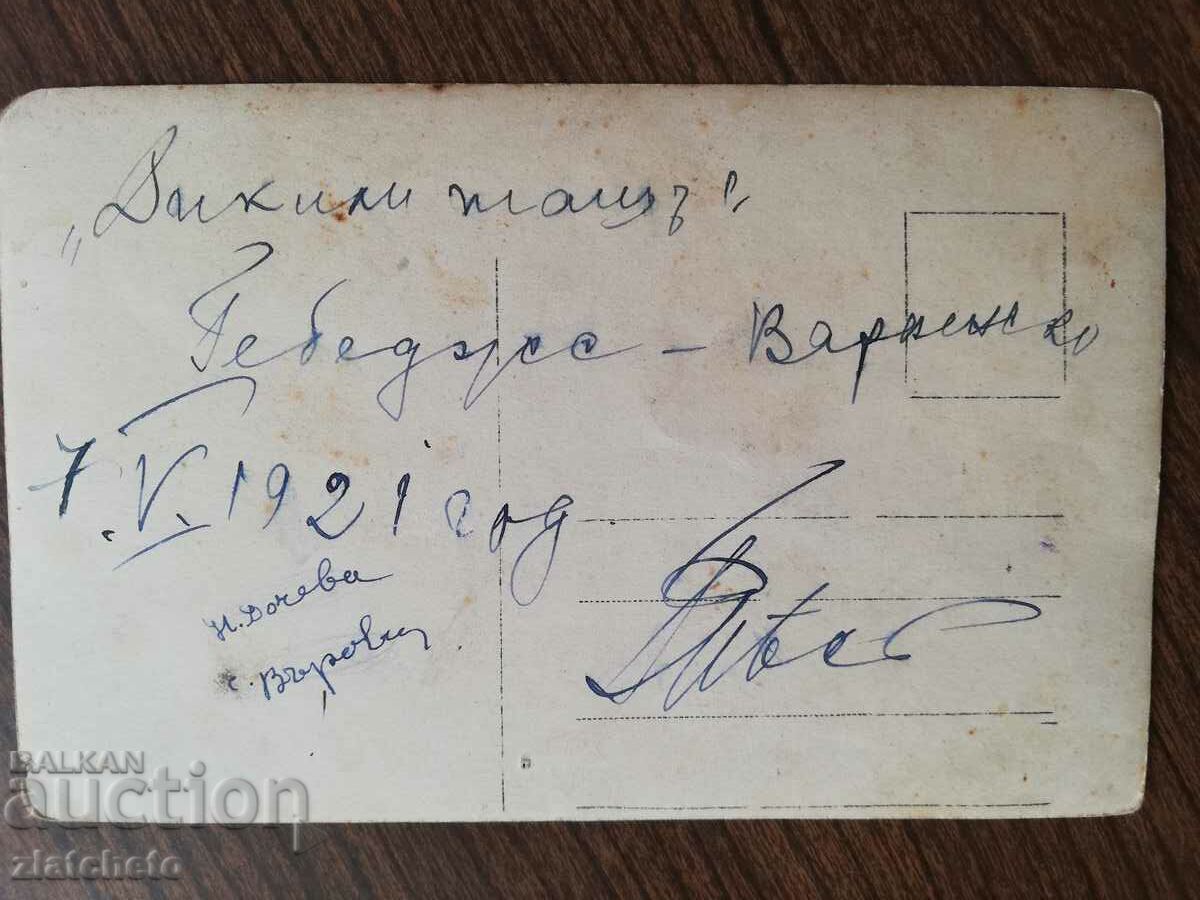 „Дикили ташъ“
Гебедже - Варненско
7.V.1921 год
Н. Дочева
с. Върбовц
BALKAN
auction
zlatcheto